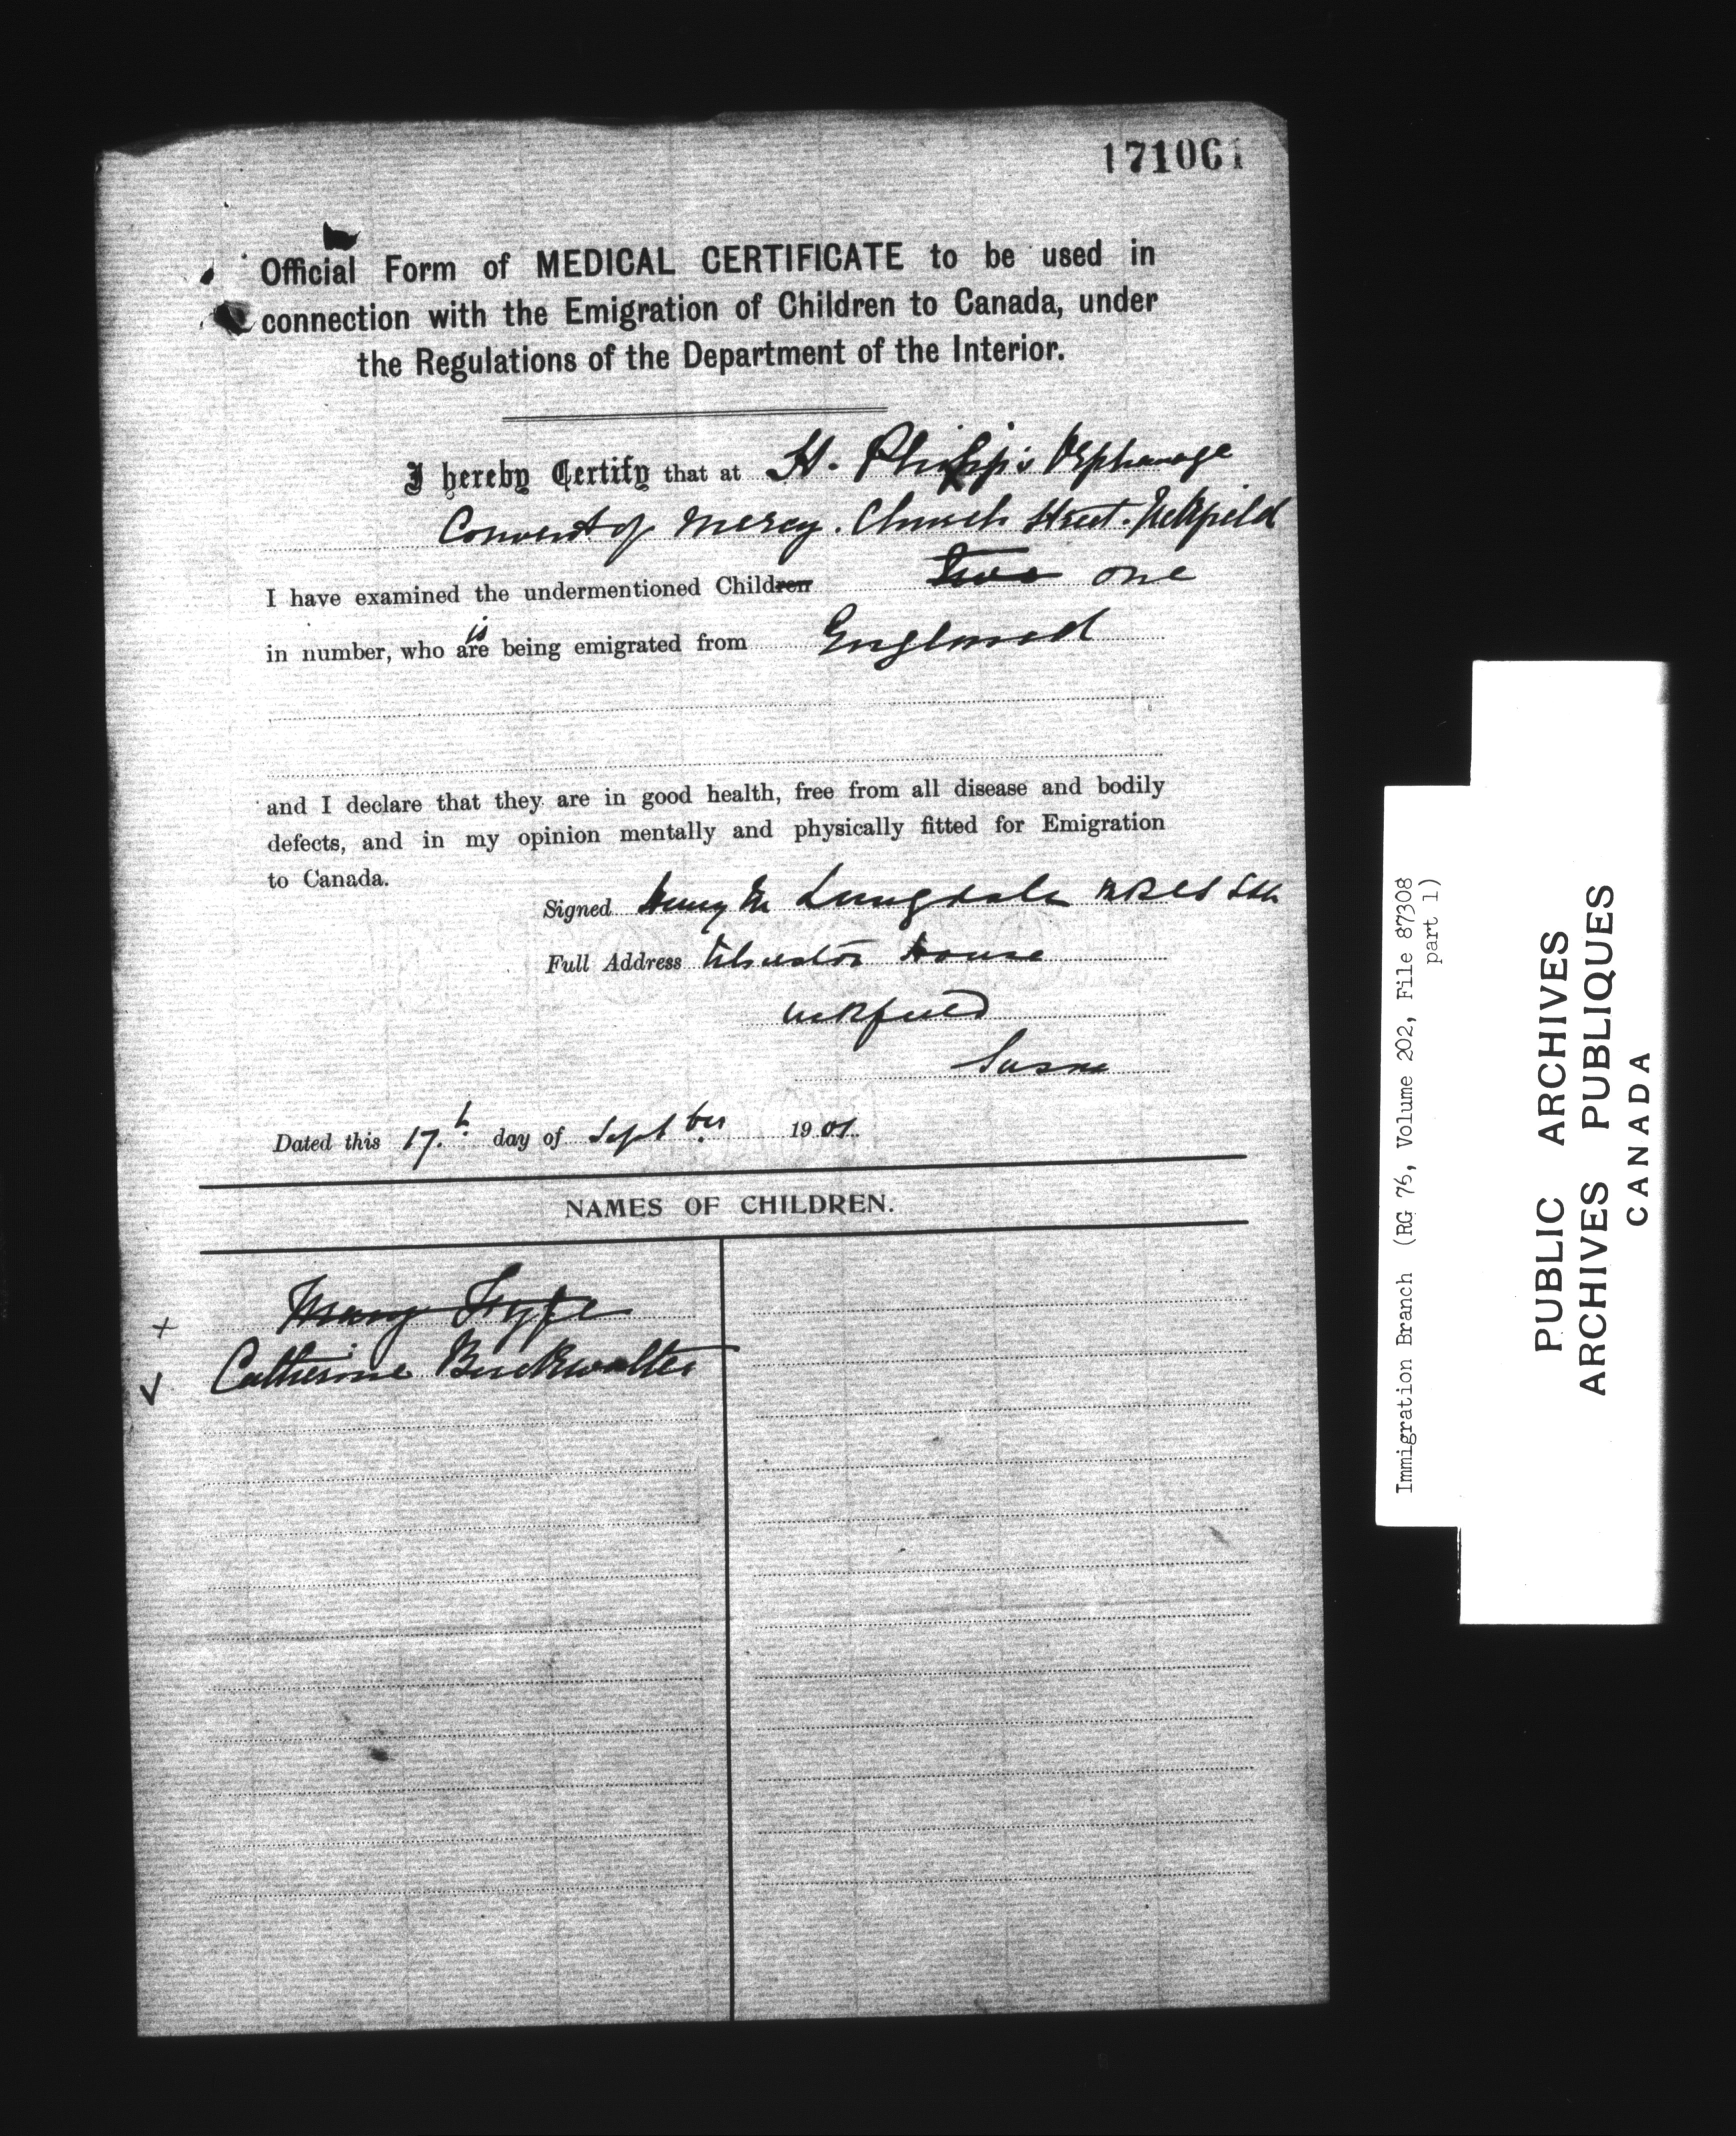 171061
Official Form of MEDICAL CERTIFICATE to be used in
connection with the Emigration of Children to Canada, under
the Regulations of the Department of the Interior.
I hereby Certify that at St. Philip's Orphanage
Convent of Mercy. Church Street. Uckfield
I have examined the undermentioned Children Two one
in number, who are is being emigrated from England
and I declare that they are in good health, free from all disease and bodily
defects, and in my opinion mentally and physically fitted for Emigration
to Canada.
Signed Henry M Langdale MRCS
Full Address House
Uckfield
Sussex
Dated this 17.th day of Septber 1901.
NAMES OF CHILDREN.
+ Mary Fyfe
✓ Catherine Buckwalter
Immigration Branch (RG 76, Volume 202, File 87308
part 1)
PUBLIC ARCHIVES
ARCHIVES PUBLIQUES
CANADA